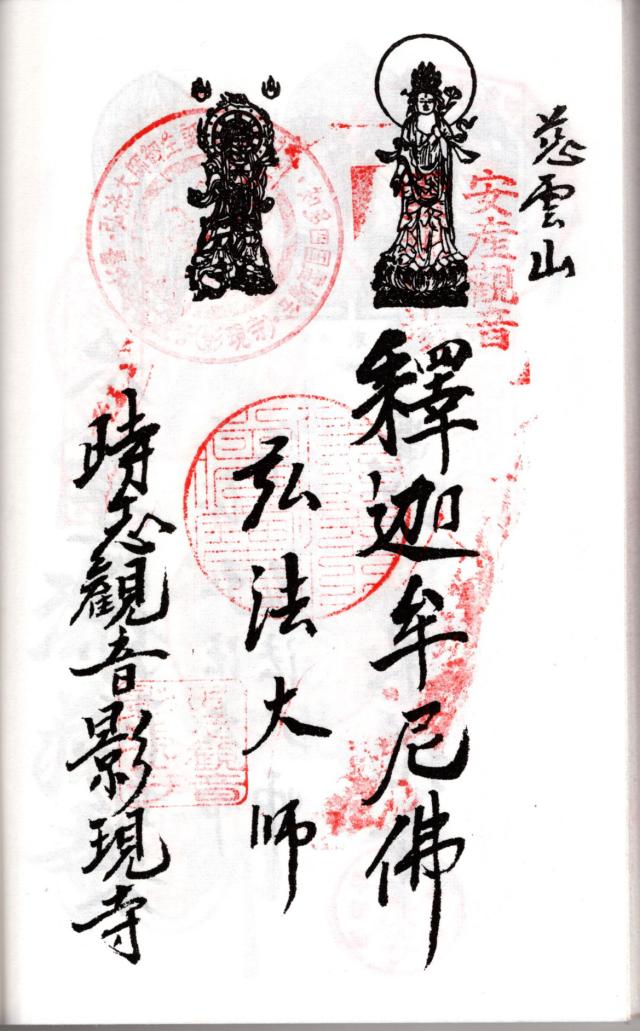 慈雲山
安産観音
釋迦牟尼佛
弘法大師
時志觀音影現寺